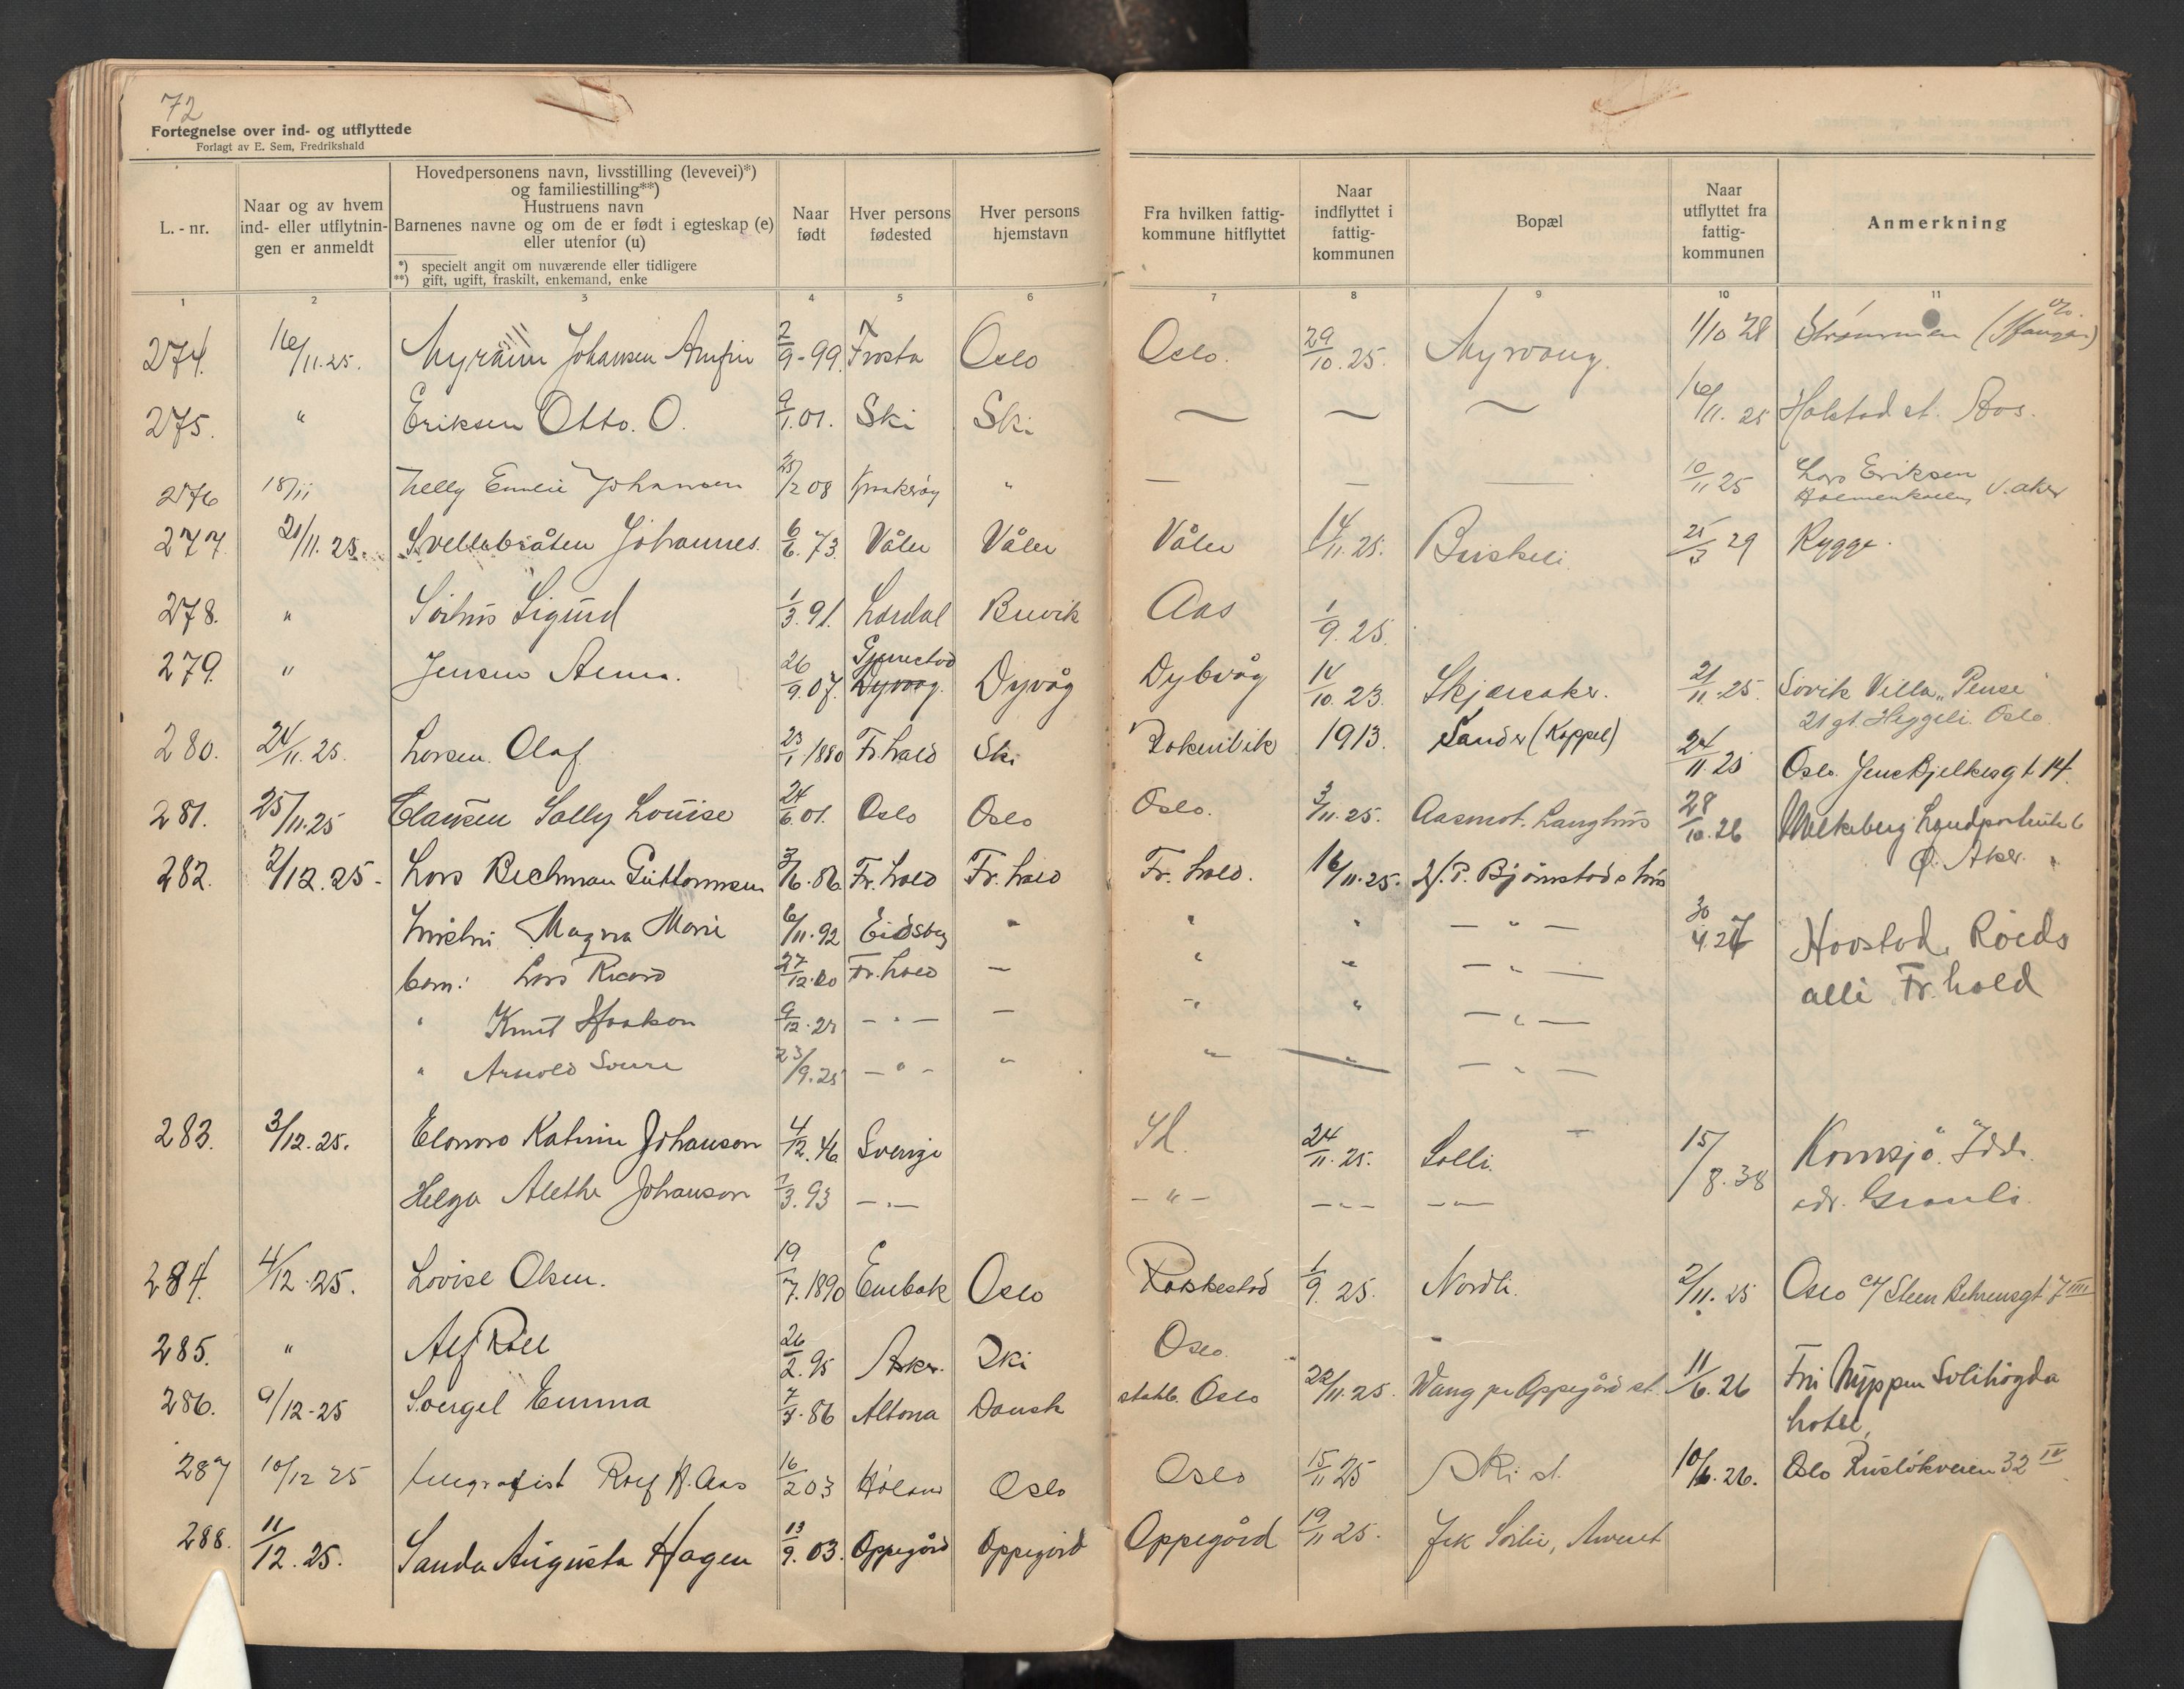 72
Fortegnelse over ind- og utflyttede
Forlagt av E. Sem, Fredrikshald
L. - nr.
Naar og av hvem ind- eller utflytnin- gen er anmeldt
Hovedpersonens navn, livsstilling (levevei)*)
og familiestilling**)
Hustruens navn
Barnenes navne og om de er født i egteskap (e)
eller utenfor (u)
*) specielt angit om nuværende eller tidligere
**) gift, ugift, fraskilt, enkemand, enke
Naar født
Hver persons fødested
Hver persons hjemstavn
Fra hvilken fattig- kommune hitflyttet
Naar indflyttet i fattig- kommunen
Bopæl
Naar utflyttet fra fattig- kommunen
Anmerkning
1 2 3 4 5 6 7 8 9 10 11
274. 16/11.25. Johansen Arnfin 2/9-99. Frosta Oslo Oslo. 29/10.25. Myrvang. 1/10 28 Strømmen
275. " Eriksen Otto. O. 9/1.01. Ski Ski 16/11.25 Holstad st. Aas.
276 18/11 Nelly Emelie Johansen 25/2 08 Kraakerøy " — — — 10/11 25 Lars Eriksen
Holmenkollen, V. aker
277. 21/11.25. Svellebråten Johannes. 6/6.73. Våler Våler Våler 14/11.25. Buskeli 25/3 29 Rygge.
278. " Sigurd 1/3.91. Lardal Buvik Aas 1/9.25.
279. " Jensen Anna. 26/9.07. Gjerestad Dyvåg Dybvåg 14/10.23. Skjærsaker. 21/11.25. Villa
21 gt. Heggeli Oslo.
280. 24/11.25. Larsen Olaf 23/1 1880 Fr.hald Ski 1913. Sander (Kappel) 24/11.25 Oslo. Jens Bjelkesgt 14.
281. 25/11.25 Clausen Sally Louise 24/6.01. Oslo Oslo Oslo. 3/11.25. Aasmot. Langhus 28/10.26
Ø. Aker.
282. 2/12.25. Lars Bechman Guttormsen 3/6.86 Fr. hald Fr. hald Fr. hald. 16/11.25. Bjørnstads hus
hustru Magna Marie 6/11.92 Eidsberg " " " — " — 30/4.27 Havstad, Røeds
barn: Lars Ricard 27/12.20 Fr. hald — " " — " — alle Fr. hald
" Knut Haakon 9/12.22 — " — — " " — " —
" Arnold 23/9.25 — " — " " " — " —
283. 3/12.25. Katrine Johanson 4/12.46 Sverige 24/11.25. Solli. 15/8.38 Kornsjø. Idd.
Helga Alethe Johanson 3.93 — " — — " — — " — — " — adr. Granli.
284. 4/12.25. Lovise Olsen. 19/7.1890 Enebak Oslo Kolbotn 1/9.25. Nordli. 2/11.25 Oslo
285. " Alf Roll 26/2.95 Asker. Ski Oslo.
286. 9/12-25 Soergel Emma 7/7.86 Altona Dansk statsb. Oslo 22/11.25. Wang pr Oppegård st. 11/6.26 Solihøgda
hotel,
287 10/12 25 telegrafist Rolf A. Aas 16/2 03 Høland Oslo Oslo 15/11 25 Ski st. 10/6.26. Oslo Ruseløkveien 32 IV
288. 11/12.25. Sanda Augusta Hagen 13/9.03. Oppegård Oppegård Oppegård 19/11 25.